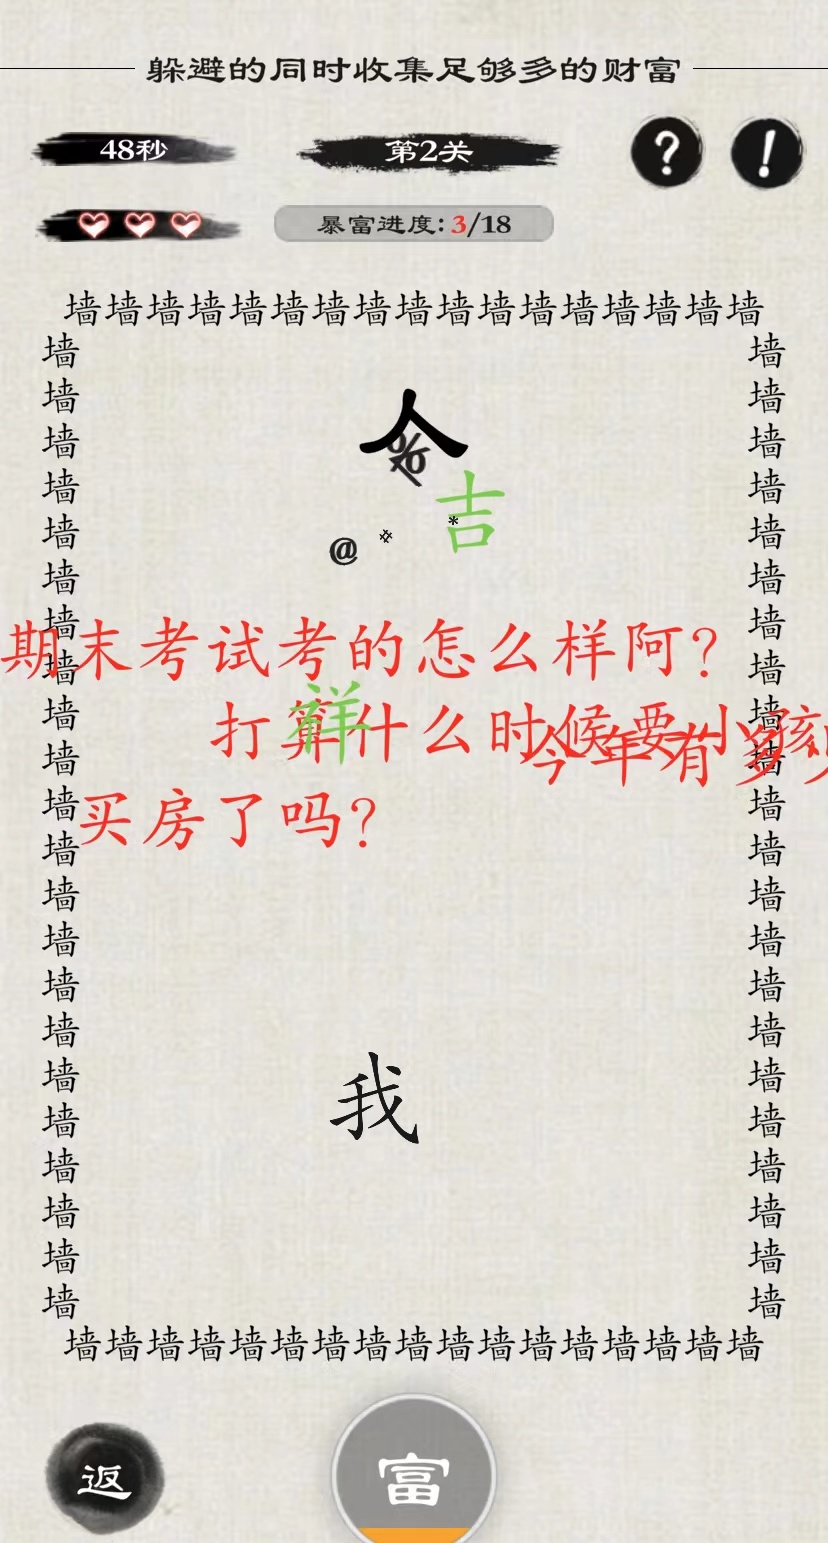 躲避的同时收集足够多的财富
48秒 第2关 ? !
暴富进度: 3/18
墙墙墙墙墙墙墙墙墙墙墙墙墙墙墙墙墙
墙 墙
墙 墙
墙 人 墙
% 
墙 墙
墙 吉 墙
@ * 
墙 墙
墙 墙
期末考试考的怎么样阿?
墙 墙
祥
墙 打算什么时候要小孩 墙
墙 今年有多少 墙
墙 买房了吗? 墙
墙 墙
墙 墙
墙 墙
墙 墙
墙 墙
墙 墙
我
墙 墙
墙 墙
墙 墙
墙 墙
墙 墙
墙墙墙墙墙墙墙墙墙墙墙墙墙墙墙墙墙
返 富